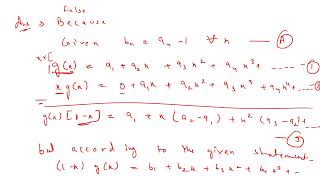 False
Ans ⇒ Because
Given bn = an - 1 ∀ n — (A)
g(x) = a1 + a2 x + a3 x² + a4 x³ + ---- (1)
x g(x) = 0 + a1 x + a2 x² + a3 x³ + a4 x⁴ ----
g(x) [1-x] = a1 + x (a2 - a1) + x² (a3 - a2) + ---
(3)
but according to the given statement
(1-x) g(x) = b1 + b2 x + b3 x² + b4 x³ + --